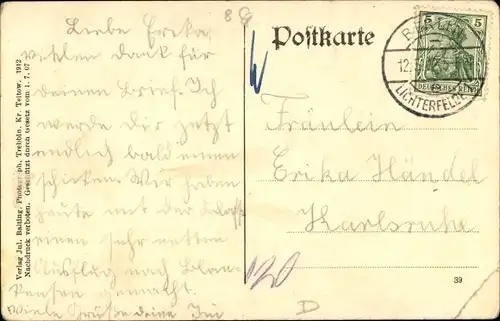 Liebe Erika,
vielen Dank für
deinen Brief. Ich
werde dir jetzt
endlich bald einen
schicken. Wir haben
heute mit der Klasse
einen sehr netten
Ausflug nach Blan
kensee gemacht.
Viele Grüße deine
Verlag Jul. Bahlng, Photograph, Trebbin, Kr. Teltow. 1912
Nachdruck verboten. Geschützt durch Gesetz vom 1. 7. 07
Postkarte
5 5
DEUTSCHES REICH
BERLIN
12.
LICHTERFELDE
Fräulein
Erika Händel
Karlsruhe
120
39
D